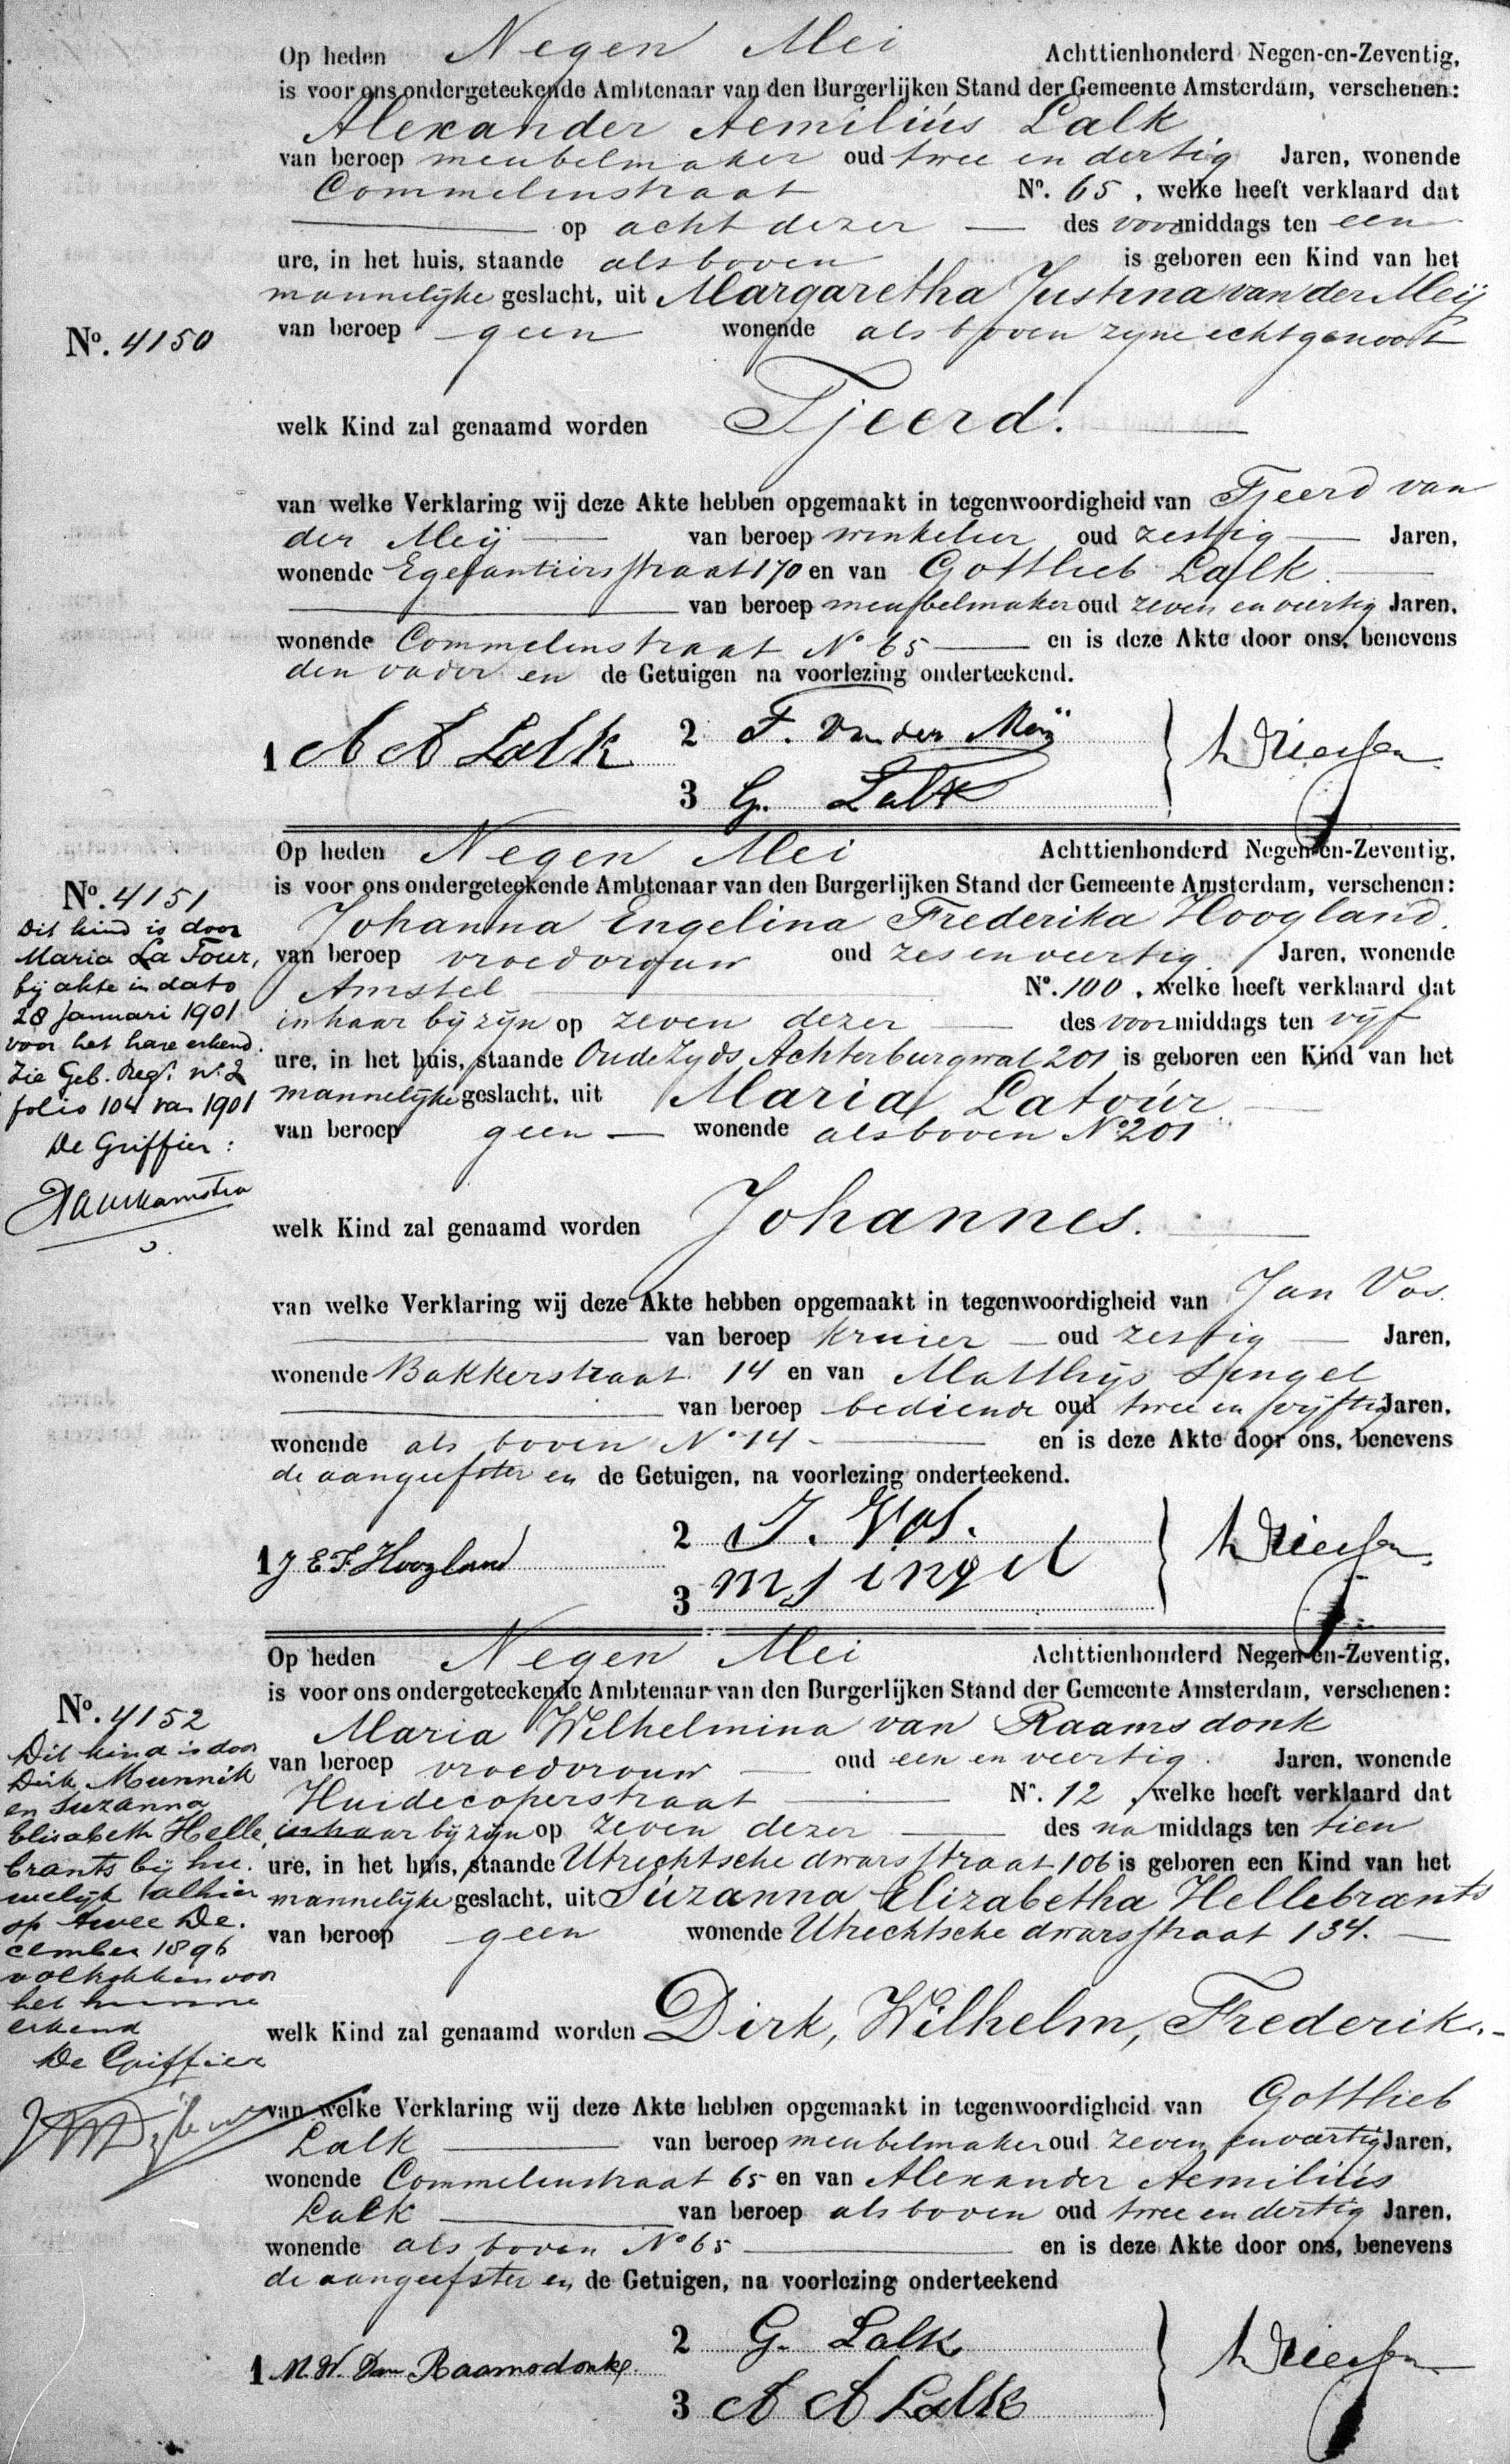 Op heden Negen Mei Achttienhonderd Negen-en-Zeventig,
is voor ons ondergeteekende Ambtenaar van den Burgerlijken Stand der Gemeente Amsterdam, verschenen:
Alexander Aemilius Lalk
van beroep meubelmaker oud twee en dertig Jaren, wonende
Commelinstraat No. 65, welke heeft verklaard dat
op acht dezer des voormiddags ten een
ure, in het huis, staande als boven is geboren een Kind van het
mannelijke geslacht, uit Margaretha Justina van der Meij
No. 4150 van beroep geen wonende als boven zijne echtgenoot
welk Kind zal genaamd worden Tjeerd.
van welke Verklaring wij deze Akte hebben opgemaakt in tegenwoordigheid van Tjeerd van
der Meij van beroep winkelier oud zestig Jaren,
wonende Egelantiersstraat 170 en van Gottlieb Lalk
van beroep meubelmaker oud zeven en veertig Jaren,
wonende Commelinstraat No 65 en is deze Akte door ons, benevens
den vader en de Getuigen na voorlezing onderteekend.
1 A A Lalk 2 T. van der Meij
3 G. Lalk
Op heden Negen Mei Achttienhonderd Negen-en-Zeventig,
is voor ons ondergeteekende Ambtenaar van den Burgerlijken Stand der Gemeente Amsterdam, verschenen:
Johanna Engelina Frederika Hoogland.
van beroep vroedvrouw oud zes en veertig Jaren, wonende
Amstel No. 100, welke heeft verklaard dat
in haar bijzijn op zeven dezer des voormiddags ten vijf
ure, in het huis, staande Oude Zijds Achterburgwal 201 is geboren een Kind van het
mannelijke geslacht, uit Maria Latour
van beroep geen wonende als boven No 201
welk Kind zal genaamd worden Johannes.
van welke Verklaring wij deze Akte hebben opgemaakt in tegenwoordigheid van Jan Vos.
van beroep kruier oud zestig Jaren,
wonende Bakkerstraat 14 en van Matthijs Singel
van beroep bediende oud twee en vijftig Jaren,
wonende als boven No 14 en is deze Akte door ons, benevens
de aangeefster en de Getuigen, na voorlezing onderteekend.
1 J E F Hoogland 2 J. Vos.
3 M Singel
No. 4151
Dit kind is door
Maria La Tour,
bij akte in dato
28 Januari 1901
voor het hare erkend.
Zie Geb. Reg. No 2
folio 104 van 1901
De Griffier:
Op heden Negen Mei Achttienhonderd Negen-en-Zeventig,
is voor ons ondergeteekende Ambtenaar van den Burgerlijken Stand der Gemeente Amsterdam, verschenen:
Maria Wilhelmina van Raamsdonk
van beroep vroedvrouw oud een en veertig Jaren, wonende
Huidecoperstraat No. 12, welke heeft verklaard dat
in haar bijzijn op zeven dezer des na middags ten tien
ure, in het huis, staande Utrechtsche dwarsstraat 106 is geboren een Kind van het
mannelijke geslacht, uit Suzanna Elizabetha Hellebrants
van beroep geen wonende Utrechtsche dwarsstraat 134.
welk Kind zal genaamd worden Dirk, Wilhelm, Frederik.
van welke Verklaring wij deze Akte hebben opgemaakt in tegenwoordigheid van Gottlieb
Lalk van beroep meubelmaker oud zeven en veertig Jaren,
wonende Commelinstraat 65 en van Alexander Aemilius
Lalk van beroep als boven oud twee en dertig Jaren,
wonende als boven No 65 en is deze Akte door ons, benevens
de aangeefster en de Getuigen, na voorlezing onderteekend
1 M. W. van Raamsdonk 2 G. Lalk
3 A A Lalk
No. 4152
Dit kind is door
Dirk Munnik
en Suzanna
Elisabeth Helle
brants bij hu.
welijk alhier
op twee De.
cember 1896
voltrokken voor
het hunne
erkend
De Griffier